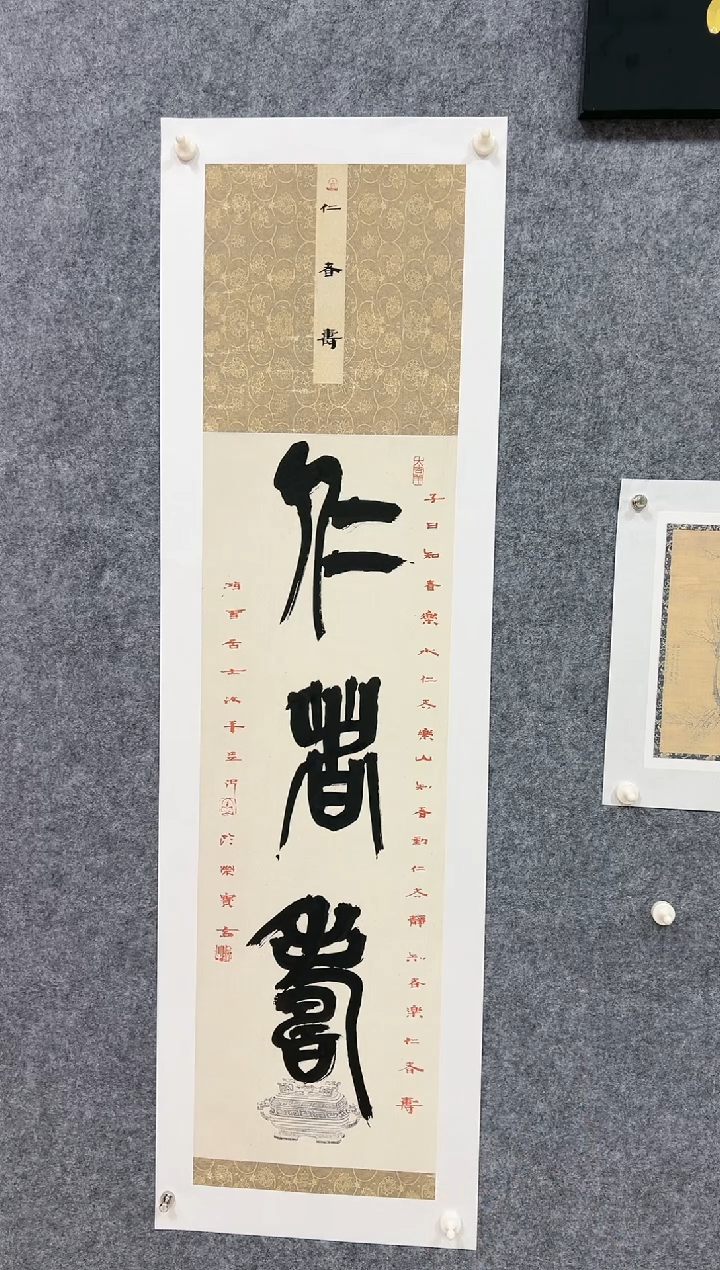 仁者壽
子曰知者樂水仁者樂山知者動仁者靜知者樂仁者壽
仁者壽
居士 於榮寶